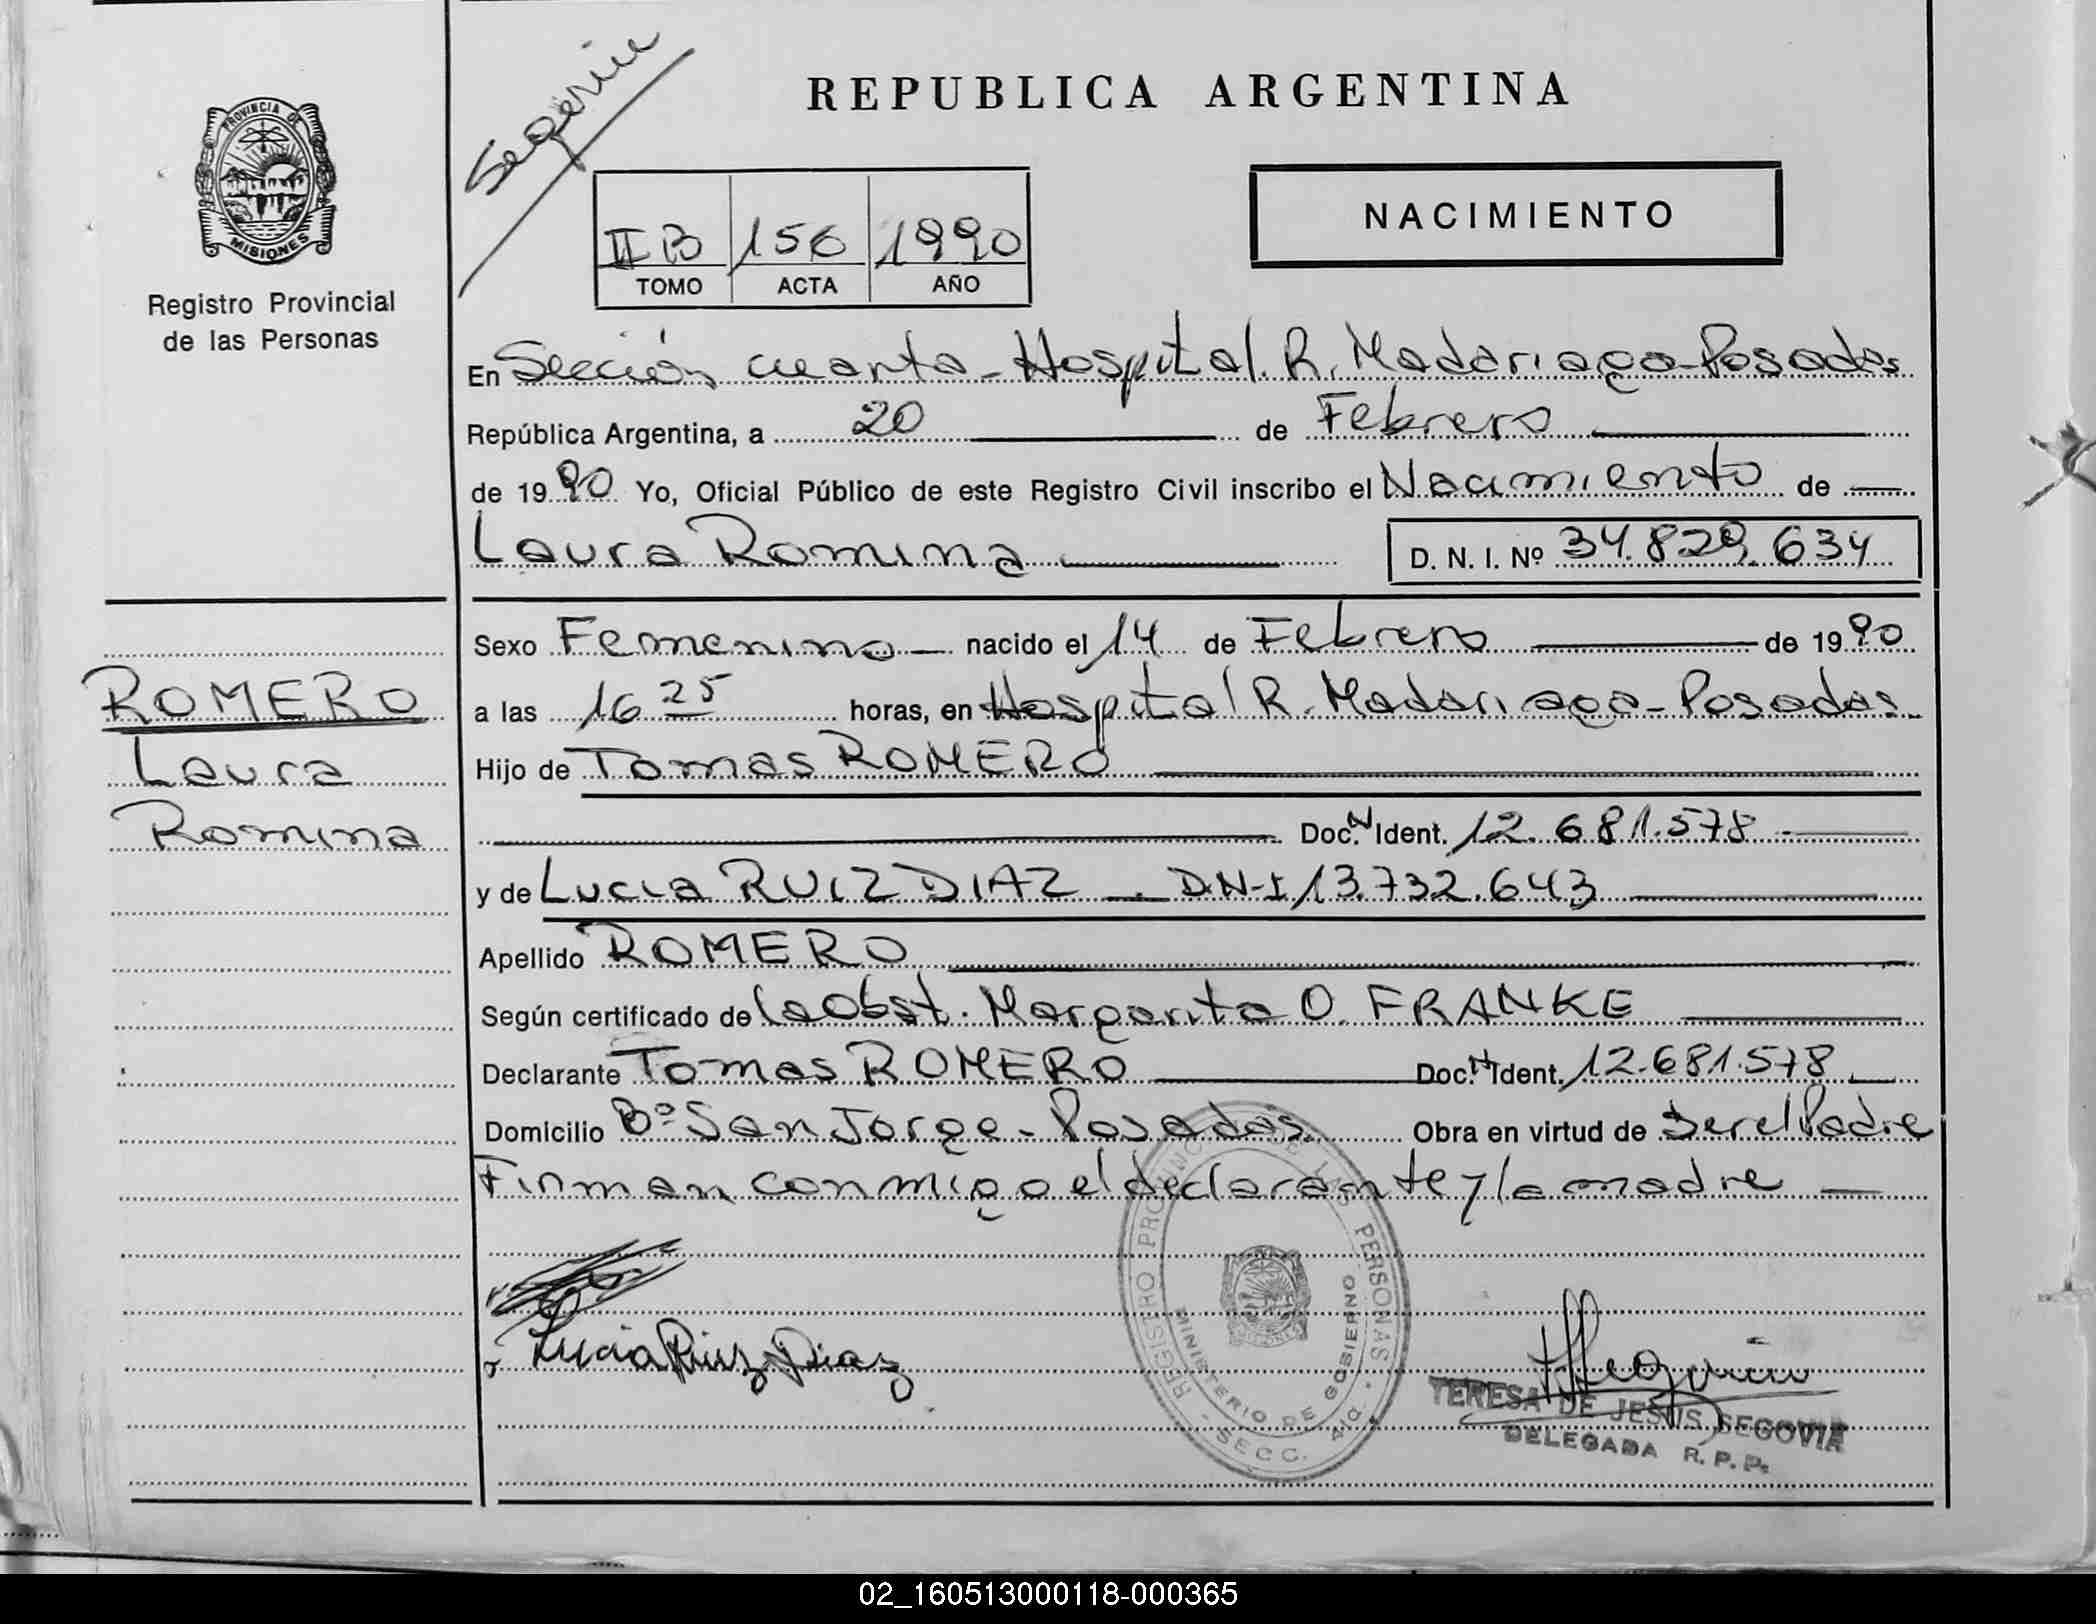 Segovia
REPUBLICA ARGENTINA
PROVINCIA DE
MISIONES
Registro Provincial
de las Personas
II B 156 1990
TOMO ACTA AÑO
NACIMIENTO
En Sección cuarta - Hospital R. Madariaga - Posadas
República Argentina, a 20 de Febrero
de 1990 Yo, Oficial Público de este Registro Civil inscribo el Nacimiento de
Laura Romina D. N. I. Nº 34.829.634
Sexo Femenino nacido el 14 de Febrero de 1990
a las 16 25 horas, en Hospital R. Madariaga - Posadas
Hijo de Tomas ROMERO
Doc. N Ident. 12.681.578
y de Lucia RUIZ DIAZ - D.N.I 13.732.643
Apellido ROMERO
Según certificado de la Obst. Margarita O. FRANKE
Declarante Tomas ROMERO Doc. N Ident. 12.681.578
Domicilio Bº San Jorge - Posadas Obra en virtud de Ser el Padre
Firman conmigo el declarante y la madre
ROMERO
Laura
Romina
Lucia Ruiz Diaz
REGISTRO PROVINCIAL DE LAS PERSONAS
MINISTERIO DE GOBIERNO
SECC. 4ta.
TERESA DE JESUS SEGOVIA
DELEGADA R. P. P.
02_160513000118-000365